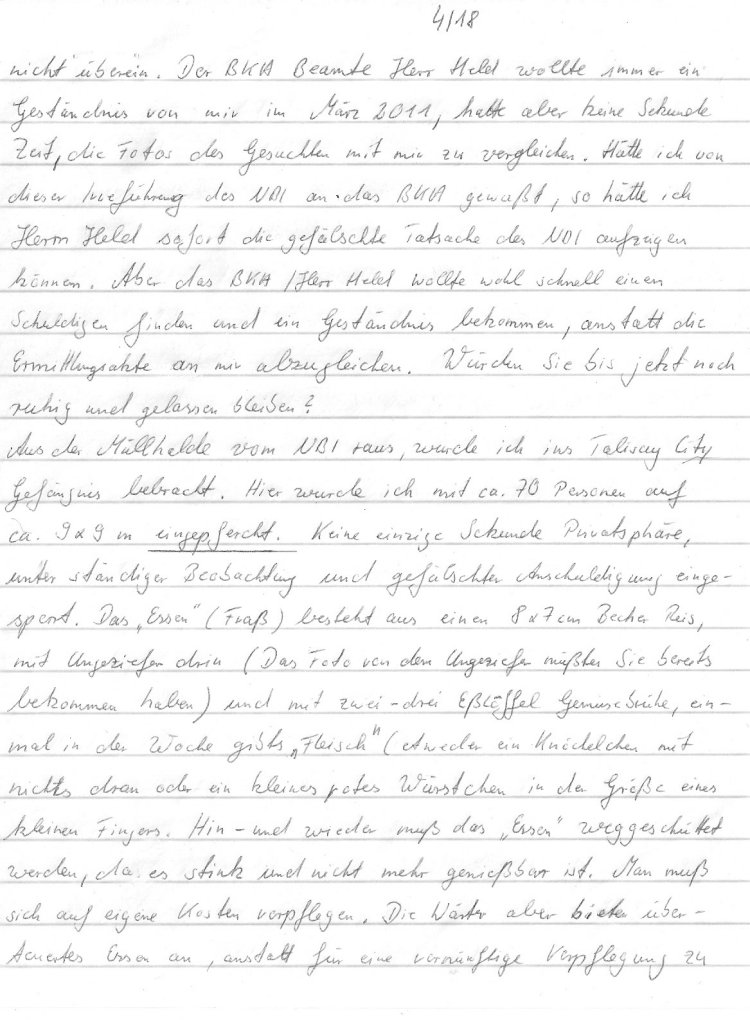 4/18
nicht überein. Der BKA Beamte Herr Held wollte immer ein
Geständnis von mir im März 2011, hatte aber keine Sekunde
Zeit, die Fotos des Gesuchten mit mir zu vergleichen. Hätte ich von
dieser Irreführung des NBI an das BKA gewußt, so hätte ich
Herrn Held sofort die gefälschte Tatsache des NBI aufzeigen
können. Aber das BKA / Herr Held wollte wohl schnell einen
Schuldigen finden und ein Geständnis bekommen, anstatt die
Ermittlungsakte an mir abzugleichen. Würden Sie bis jetzt noch
ruhig und gelassen bleiben?
Aus der Müllhalde vom NBI raus, wurde ich ins Talisay City
Gefängnis bebracht. Hier wurde ich mit ca. 70 Personen auf
ca. 9x9 m eingepfercht. Keine einzige Sekunde Privatsphäre,
unter ständiger Beobachtung und gefälschter Anschuldigung einge-
sperrt. Das „Essen" (Fraß) besteht aus einen 8x7cm Becher Reis,
mit Ungeziefer drin (Das Foto von dem Ungeziefer müßten Sie bereits
bekommen haben) und mit zwei-drei Eßlöffel Gemüsebrühe, ein-
mal in der Woche gibts „Fleisch" (etweder ein Knödelchen mit
nichts dran oder ein kleines rotes Würstchen in der Größe eines
kleinen Fingers. Hin- und wieder muß das „Essen" weggeschüttet
werden, da es stinkt und nicht mehr genießbar ist. Man muß
sich auf eigene Kosten verpflegen. Die Wärter aber bieten über-
teuertes Essen an, anstatt für eine vernünftige Verpflegung zu